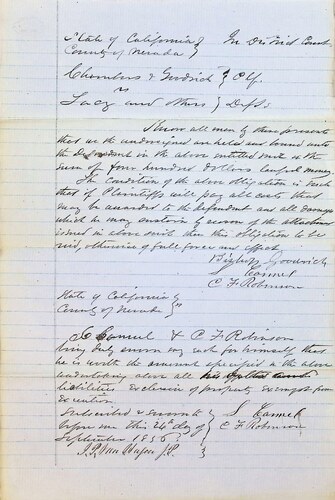 State of California } In District Court
County of Nevada }
Chambers & Goodrich } Plf.
vs
Lacy and others } Defts
Know all men by these presents
that we the undersigned are held and bound unto
the Defendant in the above entitled suit in the
sum of four hundred dollars lawful money
The condition of the above obligation is such
that if Plaintiffs will pay all costs that
may be awarded to the defendant and all damages
which he may sustain by reason of the attachment
issued in above suit then this obligation to be
void, otherwise of full force and effect
Goodrich
S Cannel
C F Robinson
State of California }
County of Nevada } ss
S Cannel & C F Robinson
being duly sworn say each for himself that
he is worth the amount specified in the above
undertaking above all
liabilities exclusive of property exempt from
execution
Subscribed & sworn to } S Cannel
before me this 24th day of } C F Robinson
September 1856 }
J. P.